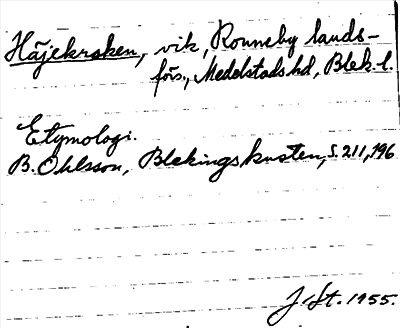 Häjekroken, vik, Ronneby lands-
förs., Medelstads hd, Blek. l.
Etymologi.
B. Ohlsson, Blekingskusten, s. 211, 196
J. St. 1955.